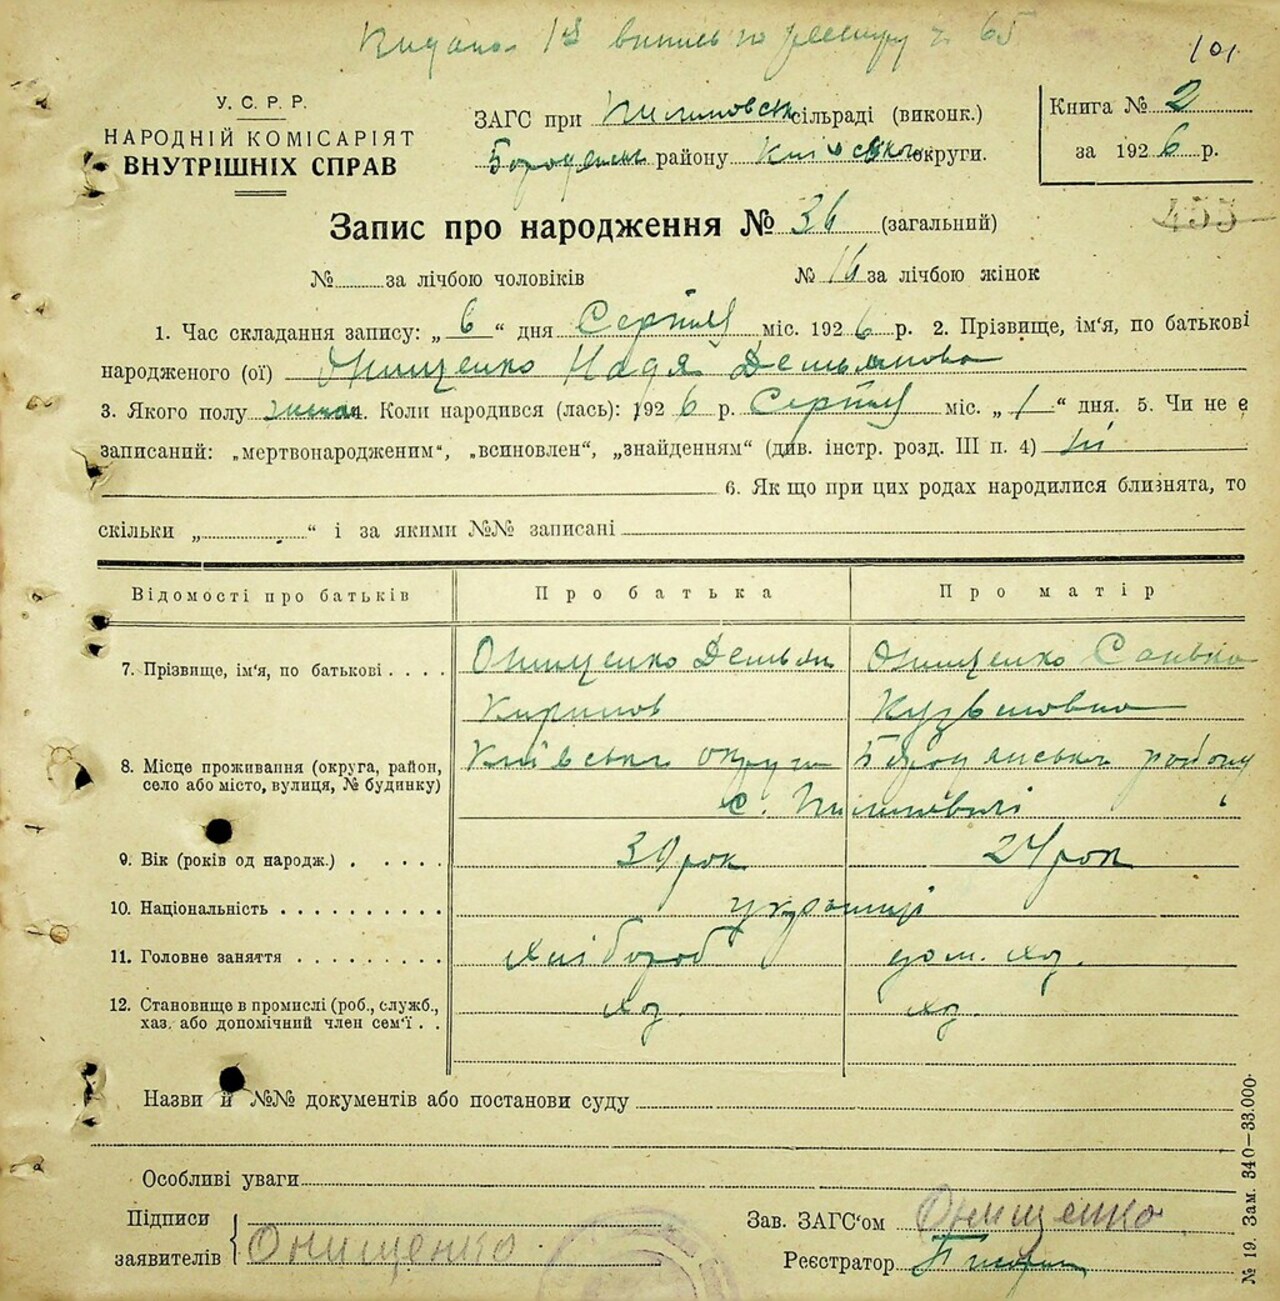 Видана 1й випись по реєстру № 65
101
У. С. Р. Р.
НАРОДНІЙ КОМІСАРІЯТ
ВНУТРІШНІХ СПРАВ
ЗАГС при Пилиповськ сільраді (виконк.)
Бородянськ району Київського округи.
Книга № 2
за 1926 р.
Запис про народження № 36 (загальний)
564
№ за лічбою чоловіків № 16 за лічбою жінок
1. Час складання запису: „6“ дня Серпня міс. 1926 р. 2. Прізвище, ім'я, по батькові
народженого (ої) Онищенко Надя Демьянова
3. Якого полу жіноч. 4. Коли народився (лась): 1926 р. Серпня міс. „1“ дня. 5. Чи не є
записаний: „мертвонародженим“, „всиновлен“, „знайденням“ (див. інстр. розд. III п. 4) ні
6. Як що при цих родах народилися близнята, то
скільки „ “ і за якими №№ записані
Відомості про батьків Про батька Про матір
7. Прізвище, ім'я, по батькові . . . . Онищенко Демьян Онищенко Санька
Кирилов Кузьмовна
8. Місце проживання (округа, район, село або місто, вулиця, № будинку) Київська округа Бородянського району
с. Пилиповичі
9. Вік (років од народж.) . . . . . 30 рок 24 рок
10. Національність . . . . . . . . . . українці
11. Головне заняття . . . . . . . . . хлібороб дом. хоз.
12. Становище в промислі (роб., служб., хаз. або допомічний член сем'ї . . хоз. хоз.
Назви й №№ документів або постанови суду
Особливі уваги
Підписи
заявителів Онищенко
Зав. ЗАГС'ом Онищенко
Реєстратор
№ 19. Зам. 340—33.000.